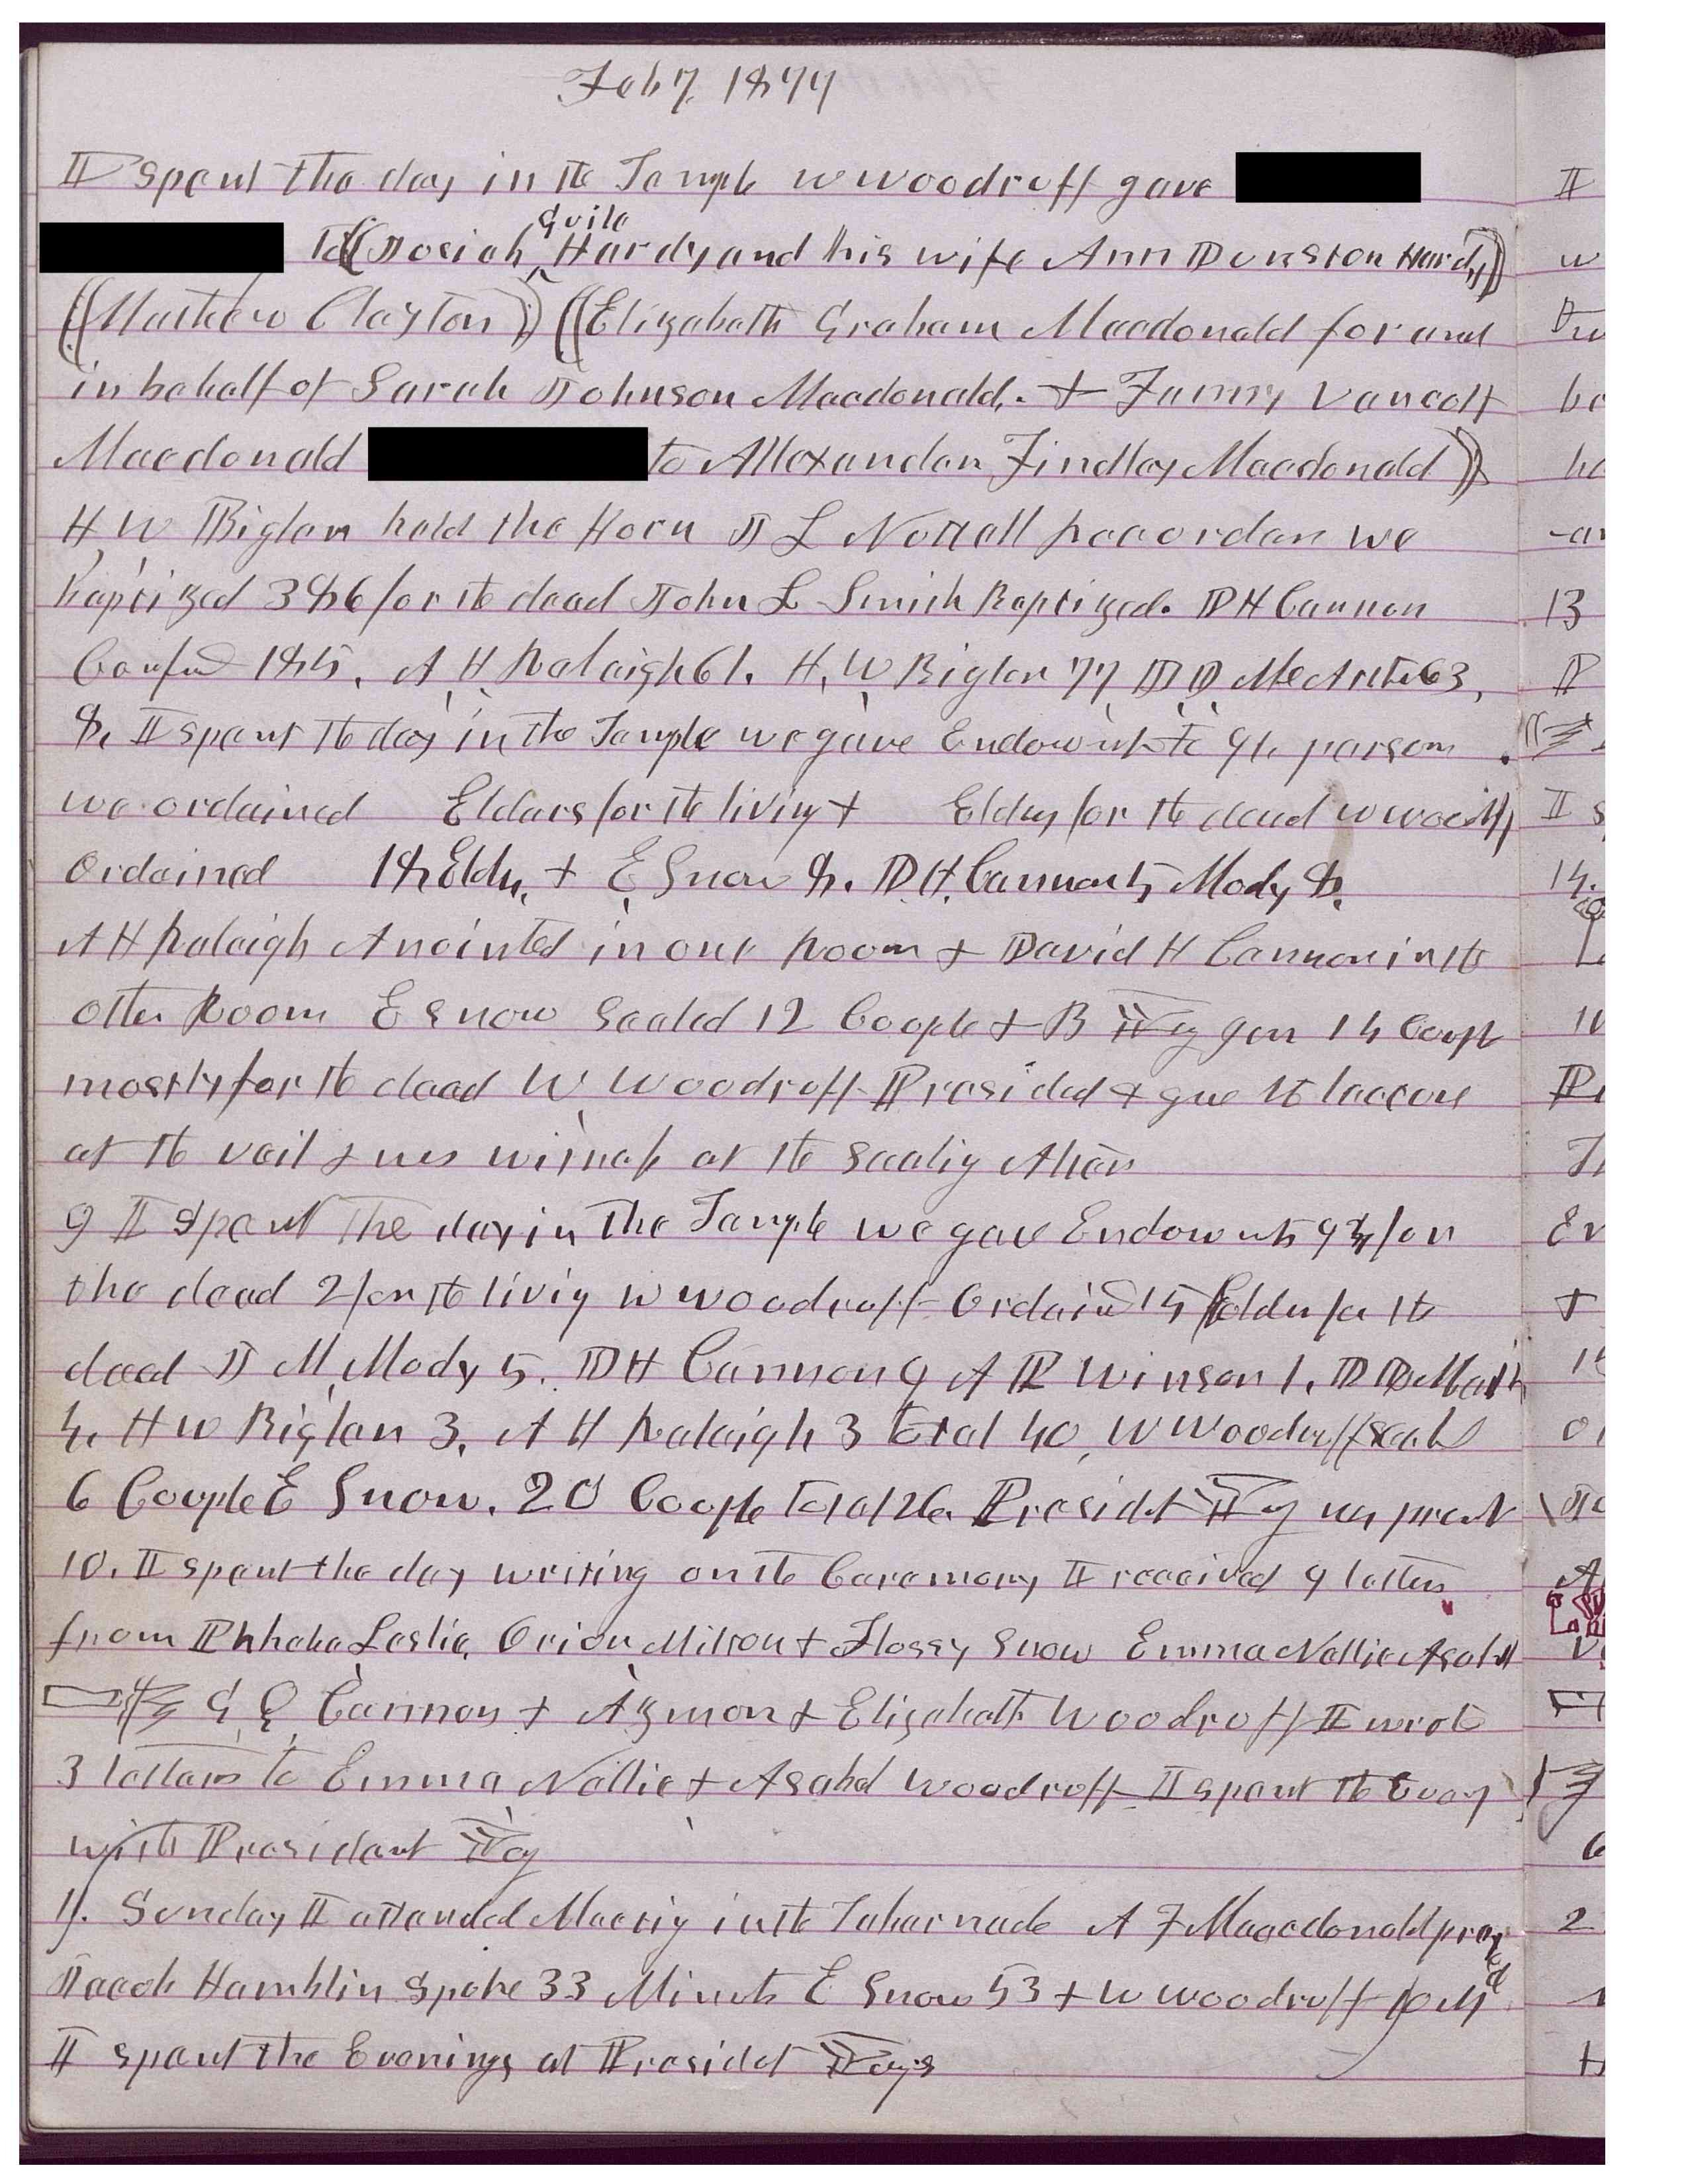 Feb 7, 1877
I spent the day in the Temple W Woodruff gave
to ((Josiah Guile Hardy and his wife Ann Dunston Hardy))
((Mathew Clayton)) ((Elizabeth Graham Macdonald for and
in behalf of Sarah Johnson Macdonald. + Fanny Vancott
Macdonald to Allexander Findlay Macdonald))
H, W Bigler held the Horn J L Nottall Recorder we
baptized 386 for the dead John L Smith Baptized. D H Cannon
Confmd 185, A H Raleigh 61. H, W Bigler 77 D D McArthr 63,
8, I spent the day in the Temple we gave Endowmts to 94 persons
we ordained Elders for the living + Elders for the dead W Woodruff
Ordained 18 Elders, + E Snow 8. D. H. Cannon 5 Mody 8,
A H Raleigh Anointed in one Room + David H Cannon in the
other Room E Snow Sealed 12 Couple + B Yg 14 Coupl
mostly for the dead W Woodruff Presided + gave the leccture
at the vail + was witness at the Sealig Alter
9 I spent The day in the Temple we gave Endowmts 93 for
the dead 2 for the livig W Woodruff Ordaind 15 Elders for the
dead J M, Mody 5. D H Cannon 9 A P Winsor 1, D D McArth
4, H W Bigler 3, A H Raleigh 3 total 40, W Woodruff seald
6 Couple E Snow. 20 Couple total 26. Presidt Yg was presnt
10. I spent the day writing on the Ceremony I received 9 letters
from Phebe Leslie, Orion Milton + Flossy Snow Emma Nellie Asahel
G Q Cannon + Azmon + Elizabeth Woodruff I wrote
3 letters to Emma Nellie + Asahel Woodruff I spent the Eveng
with President Yg
11. Sunday I attended Meetig in the Tabernacle A F Maacdonald prayed
Jacob Hamblin Spoke 33 Minuts E Snow 53 + W Woodruff 10 M
I spent the Evening at Presidet Yg's